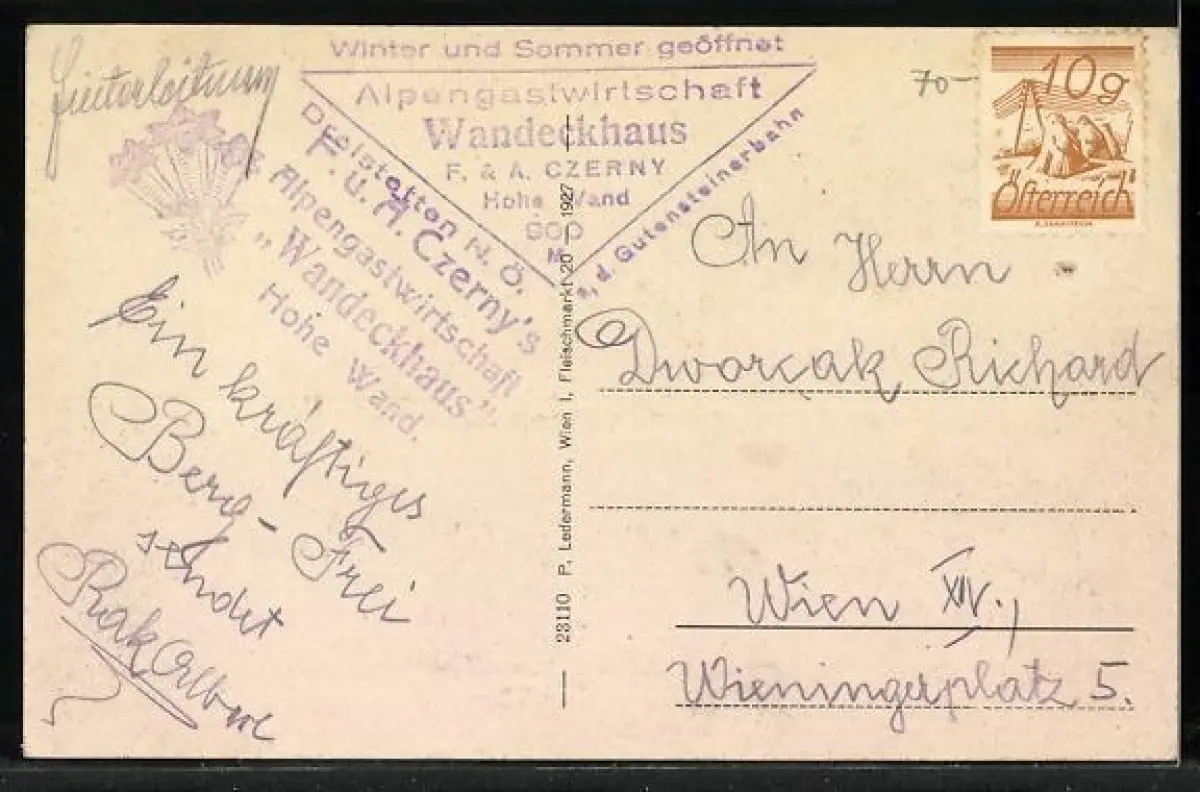 Winter und Sommer geöffnet
Alpengastwirtschaft
Wandeckhaus
F. & A. CZERNY
Hohe Wand
900
M
Dreistetten N. Ö.
a. d. Gutensteinerbahn
F. u. A. Czerny's
Alpengastwirtschaft
„Wandeckhaus"
Hohe
Wand.
Ein kräftiges
Berg-Frei
sendet
Rak
70-
10g
Österreich
An Herrn
Dworcak Richard
Wien XIV.,
Wieningerplatz 5.
23110 P. Ledermann, Wien I, Fleischmarkt 20 — 1927